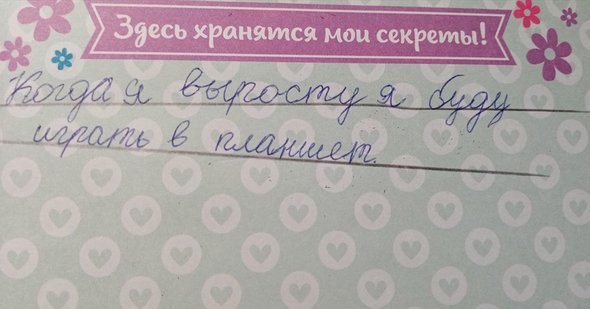 Здесь хранятся мои секреты!
Когда я выросту я буду
играть в планшет.